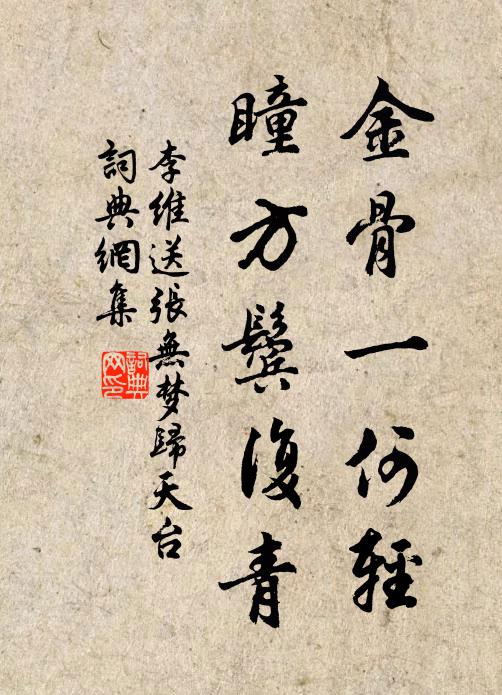 金骨一何輕
瞳方鬢復青
李維送張無梦歸天台
詞典網集
詞典网印